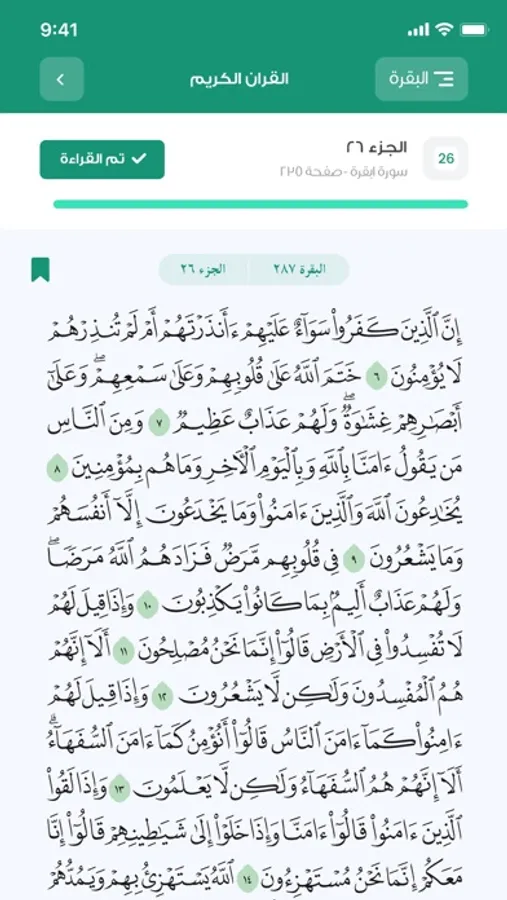 9:41
البقرة
القران الكريم
26
الجزء ٢٦
سورة ابقرة - صفحة ٢٣٥
تم القراءة
البقرة ٢٨٧
الجزء ٢٦
إِنَّ ٱلَّذِينَ كَفَرُوا۟ سَوَآءٌ عَلَيْهِمْ ءَأَنذَرْتَهُمْ أَمْ لَمْ تُنذِرْهُمْ
لَا يُؤْمِنُونَ ٦ خَتَمَ ٱللَّهُ عَلَىٰ قُلُوبِهِمْ وَعَلَىٰ سَمْعِهِمْ ۖ وَعَلَىٰٓ
أَبْصَٰرِهِمْ غِشَٰوَةٌ ۖ وَلَهُمْ عَذَابٌ عَظِيمٌ ٧ وَمِنَ ٱلنَّاسِ
مَن يَقُولُ ءَامَنَّا بِٱللَّهِ وَبِٱلْيَوْمِ ٱلْءَاخِرِ وَمَا هُم بِمُؤْمِنِينَ ٨
يُخَٰدِعُونَ ٱللَّهَ وَٱلَّذِينَ ءَامَنُوا۟ وَمَا يَخْدَعُونَ إِلَّآ أَنفُسَهُمْ
وَمَا يَشْعُرُونَ ٩ فِى قُلُوبِهِم مَّرَضٌ فَزَادَهُمُ ٱللَّهُ مَرَضًا ۖ
وَلَهُمْ عَذَابٌ أَلِيمٌۢ بِمَا كَانُوا۟ يَكْذِبُونَ ١٠ وَإِذَا قِيلَ لَهُمْ
لَا تُفْسِدُوا۟ فِى ٱلْأَرْضِ قَالُوٓا۟ إِنَّمَا نَحْنُ مُصْلِحُونَ ١١ أَلَآ إِنَّهُمْ
هُمُ ٱلْمُفْسِدُونَ وَلَٰكِن لَّا يَشْعُرُونَ ١٢ وَإِذَا قِيلَ لَهُمْ
ءَامِنُوا۟ كَمَآ ءَامَنَ ٱلنَّاسُ قَالُوٓا۟ أَنُؤْمِنُ كَمَآ ءَامَنَ ٱلسُّفَهَآءُ ۗ
أَلَآ إِنَّهُمْ هُمُ ٱلسُّفَهَآءُ وَلَٰكِن لَّا يَعْلَمُونَ ١٣ وَإِذَا لَقُوا۟
ٱلَّذِينَ ءَامَنُوا۟ قَالُوٓا۟ ءَامَنَّا وَإِذَا خَلَوْا۟ إِلَىٰ شَيَٰطِينِهِمْ قَالُوٓا۟ إِنَّا
مَعَكُمْ إِنَّمَا نَحْنُ مُسْتَهْزِءُونَ ١٤ ٱللَّهُ يَسْتَهْزِئُ بِهِمْ وَيَمُدُّهُمْ